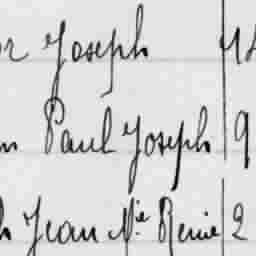 Joseph
Paul Joseph 9
Jean Mie René 2